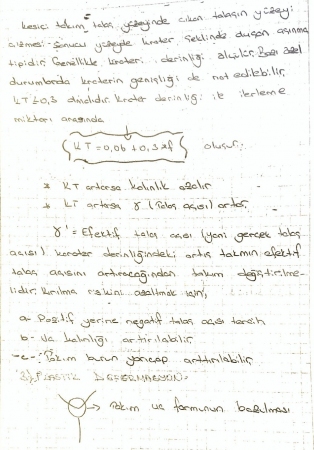 kesici takım talaş yüzeyinde çıkan talaşın yüzeyi
çizmesi sonucu yüzeyde krater şeklinde oluşan aşınma
tipidir. Genellikle krater derinliği ölçülür. Bazı özel
durumlarda kraterin genişliği de not edilebilir.
KT ≤0,3 olmalıdır. krater derinliği ile ilerleme
miktarı arasında
KT = 0,06 + 0,3xf oluşur.
* KT artarsa kalınlık azalır
* KT artarsa γ (talaş açısı) artar.
γ' = Efektif talaş açısı (yani gerçek talaş
açısı) krater derinliğindeki artış takımın efektif
talaş açısını artıracağından takım değiştirilme-
lidir. kırılma riskini azaltmak için;
a- Pozitif yerine negatif talaş açısı tercih
b- Uç kalınlığı artırılabilir
c- Takım burun yarıçapı arttırılabilir
3) PLASTİK DEFORMASYON:
→ Takım uç formunun bozulması